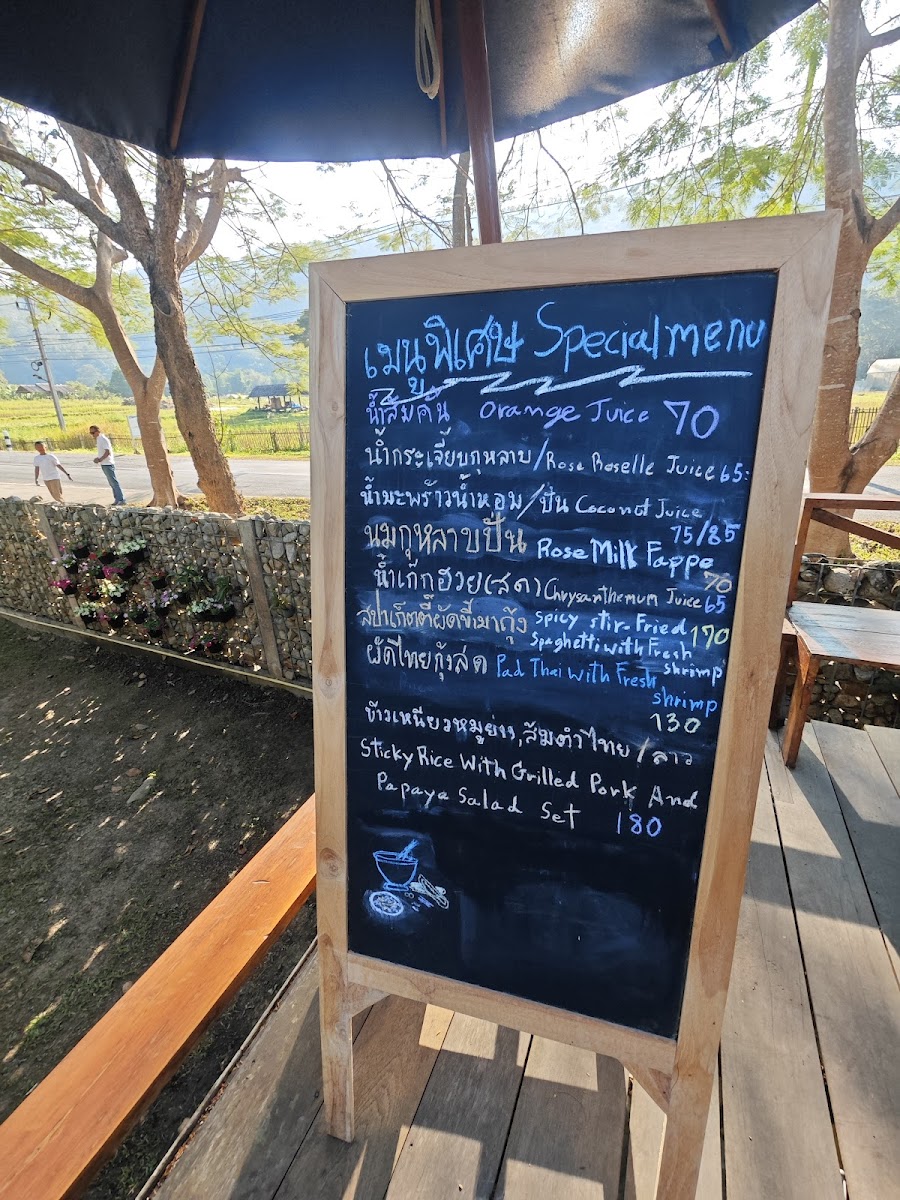 เมนูพิเศษ Special menu
น้ำส้มคั้น Orange Juice 70
น้ำกระเจี๊ยบกุหลาบ/Rose Roselle Juice 65:
น้ำมะพร้าวน้ำหอม/ปั่น Coconut Juice
75/85
นมกุหลาบปั่น Rose Milk Fappe
70
น้ำเก๊กฮวย(สด) Chrysanthemum Juice 65
สปาเก็ตตี้ผัดขี้เมากุ้ง spicy stir-Fried 170
Spaghetti with Fresh
shrimp
ผัดไทยกุ้งสด Pad Thai with Fresh
shrimp
130
ข้าวเหนียวหมูย่าง,ส้มตำไทย/ลาว
Sticky Rice With Grilled Pork And
Papaya Salad Set 180